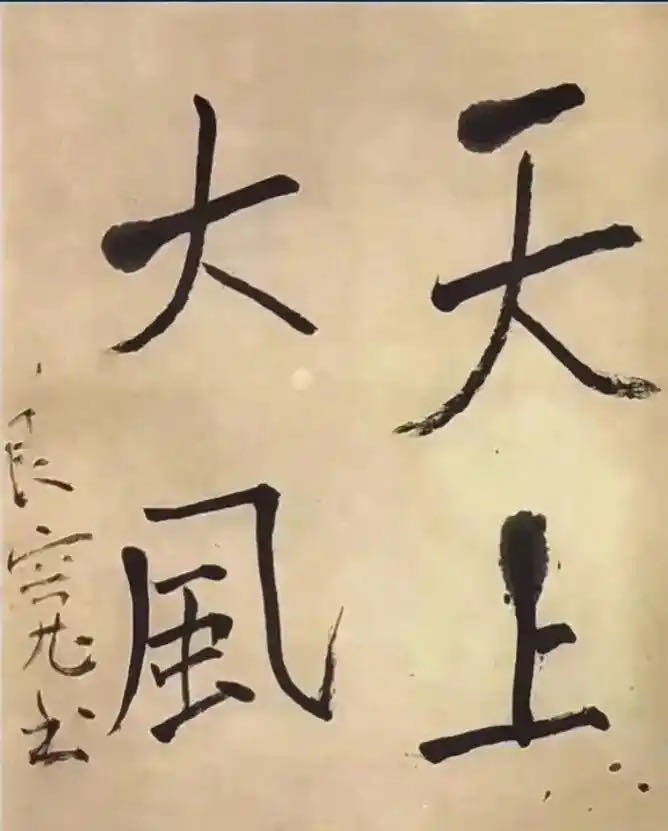 天上
大風
良寛书